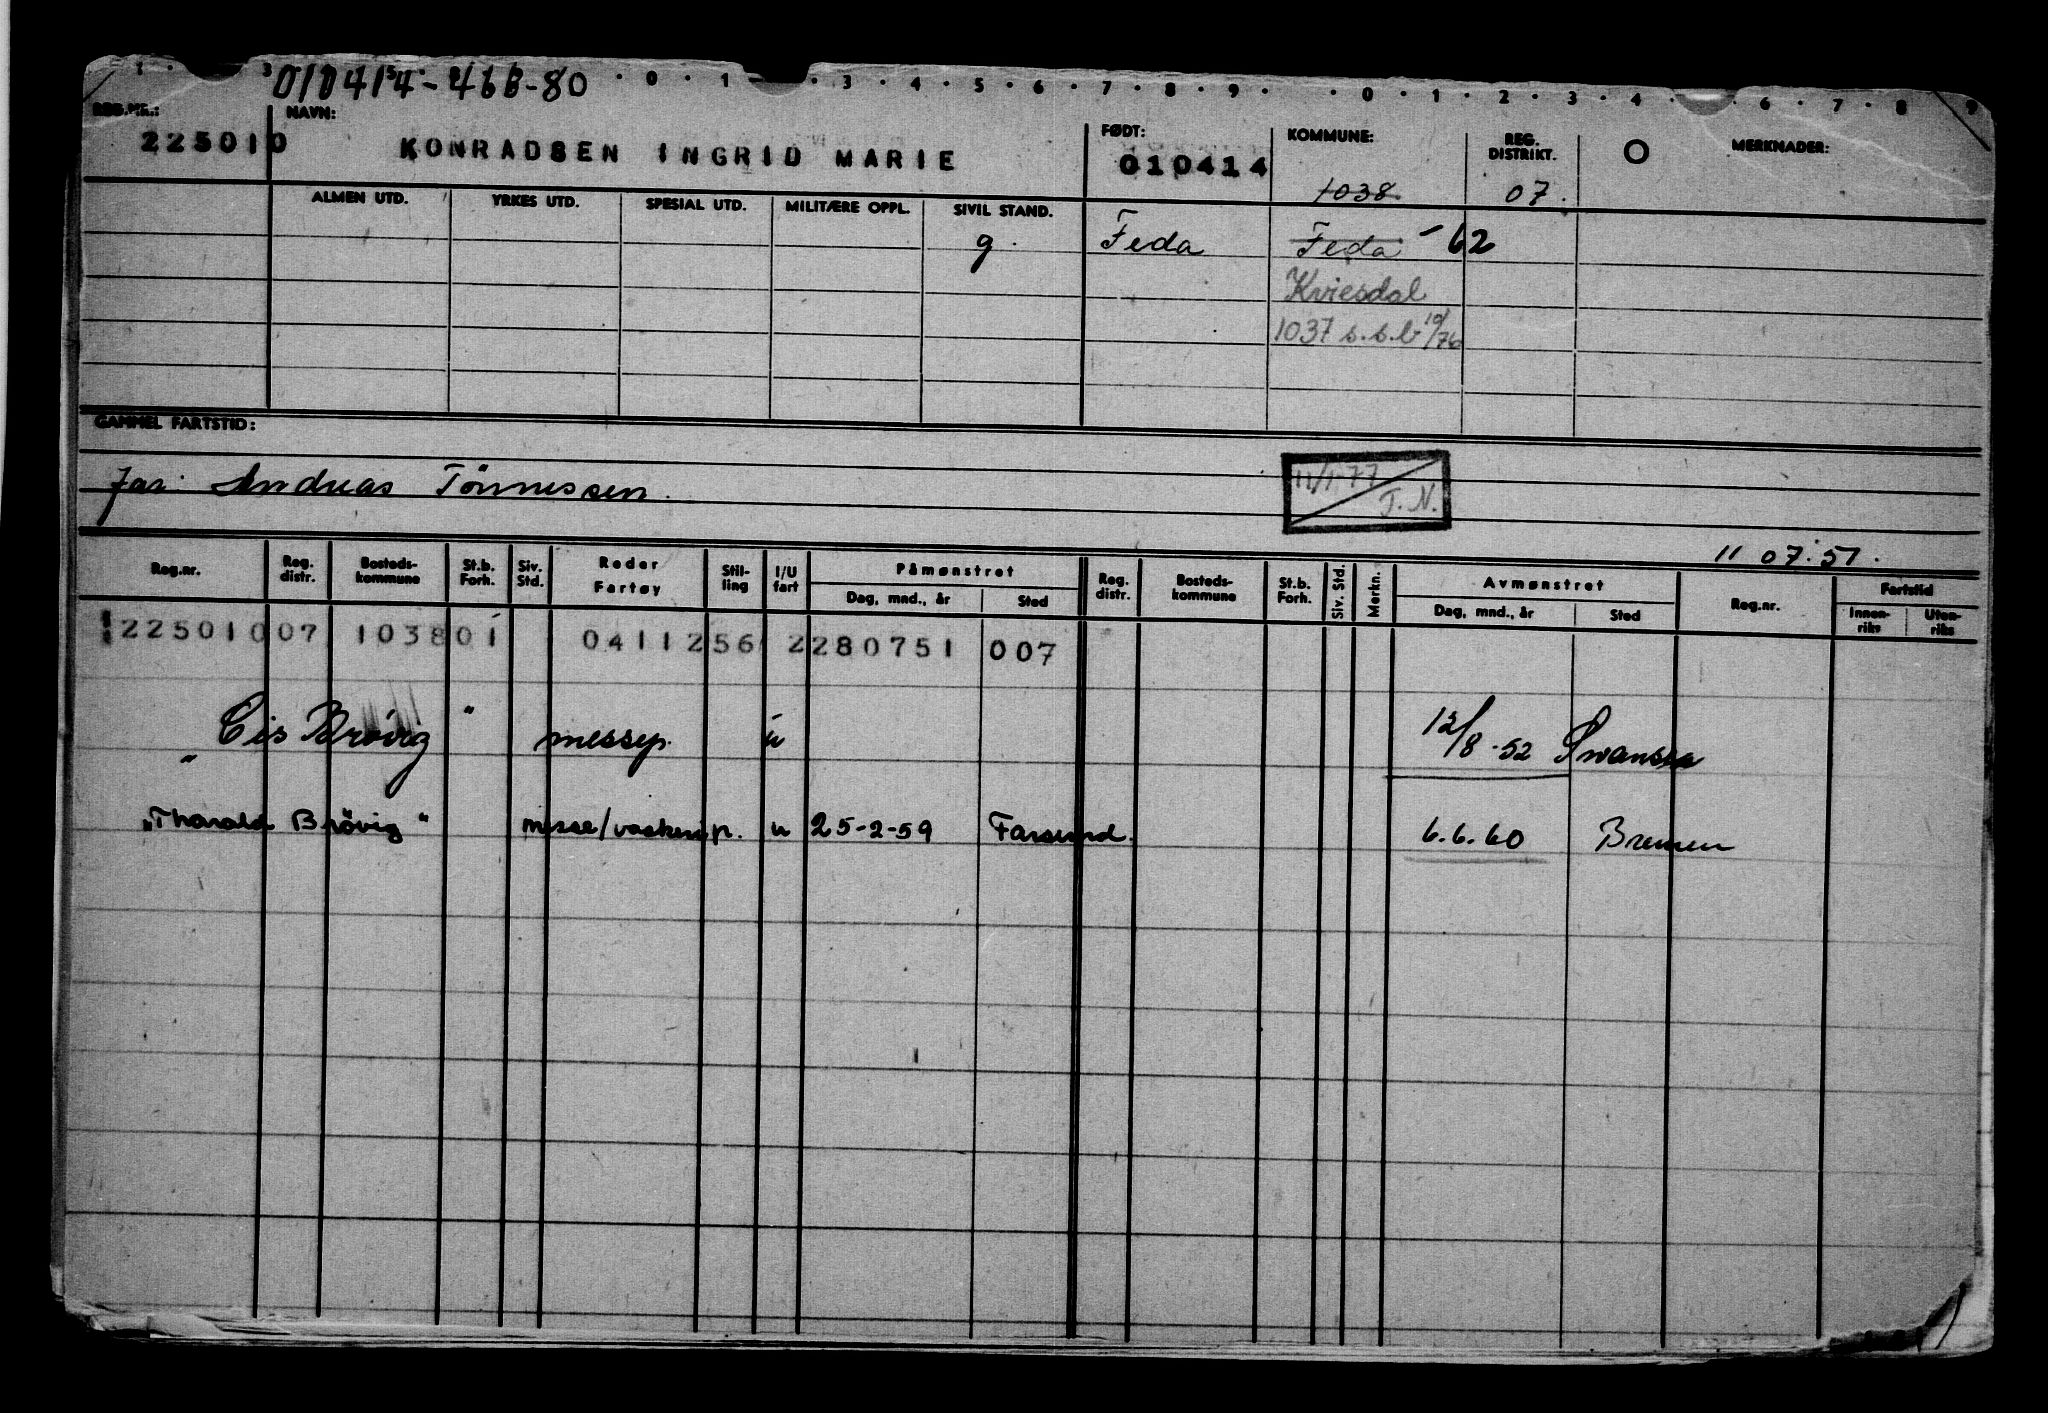 010414-46680
REG.NR.: NAVN: FØDT: KOMMUNE: REG. DISTRIKT. O MERKNADER:
225010 KONRADSEN INGRID MARIE 010414 1038 07.
ALMEN UTD. YRKES UTD. SPESIAL UTD. MILITÆRE OPPL. SIVIL STAND.
g. Feda Feda -62
Kviesdal
1037 s.s.b 10/76
GAMMEL FARTSTID:
far: Andreas Tönnessen.
11/1-77
T.N.
11 07.51.
Reg.nr. Reg. distr. Bosteds- kommune St.b. Forh. Siv. Std. Reder Fartøy Stil- ling I/U fart Påmønstret Dag, mnd., år Sted Reg. distr. Bosteds- kommune St.b. Forh. Siv. Std. Merkn. Avmønstret Dag, mnd., år Sted Reg.nr. Fartstid Innen- riks Uten- riks
225010 07 1038 01 04112 56 2 280751 007
"Cis Brövig" messep. u 12/8-52 Swansea
"Tharald Brövig" messe/vaskerip. u 25-2-59 Farsund. 6.6.60 Bremen